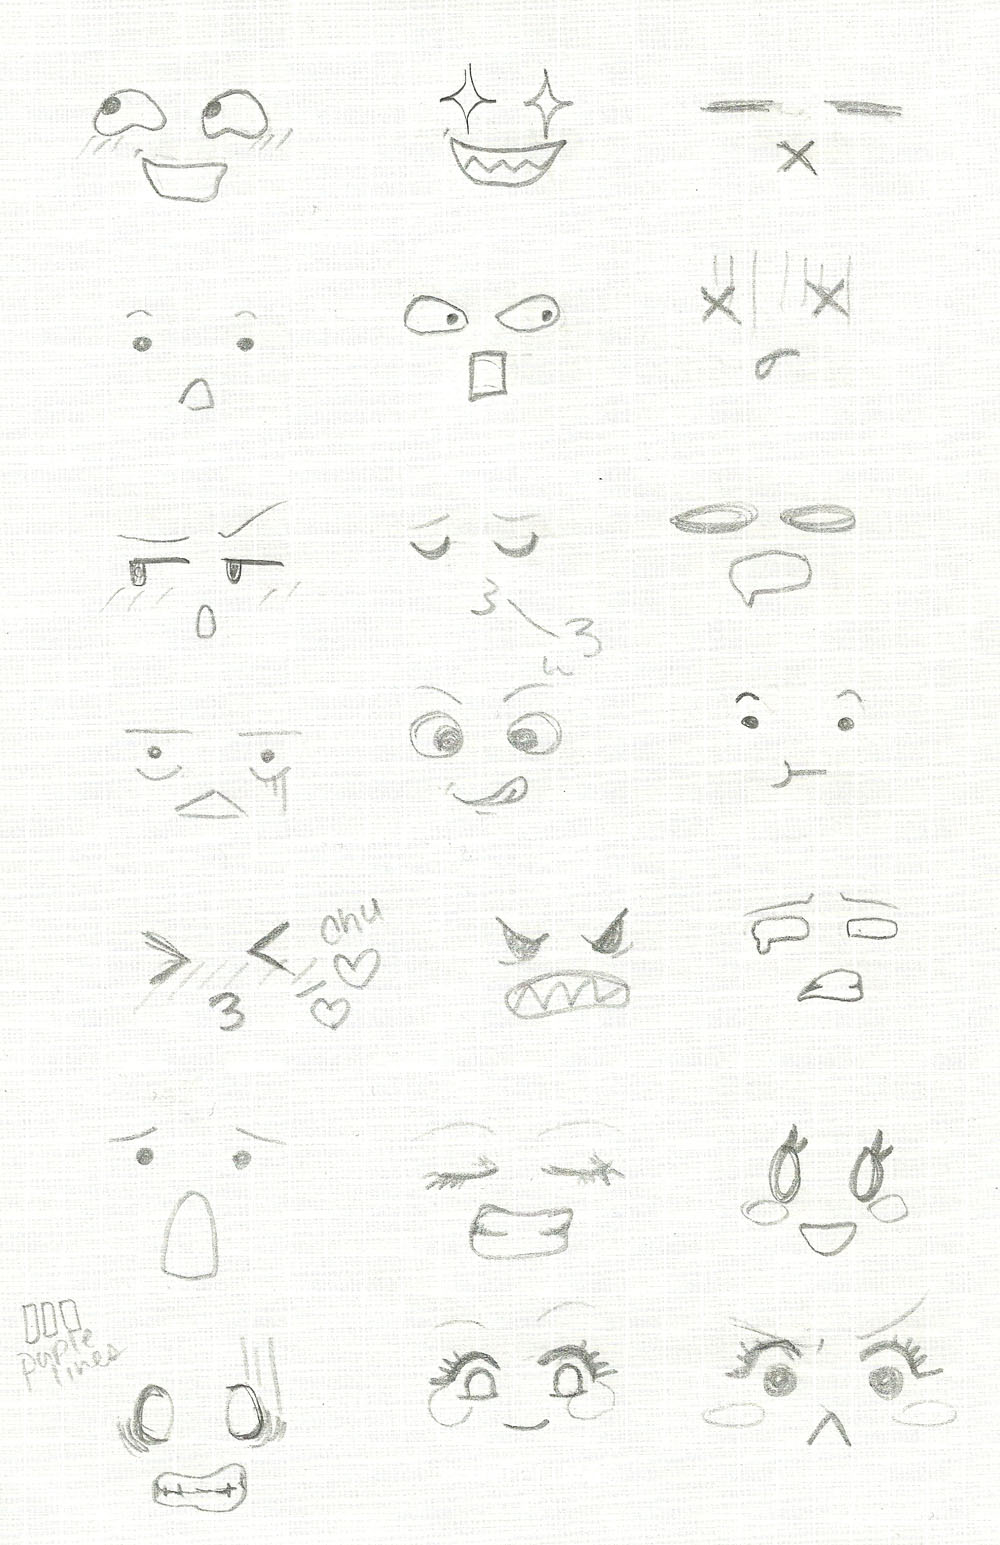 chu
puple
lines